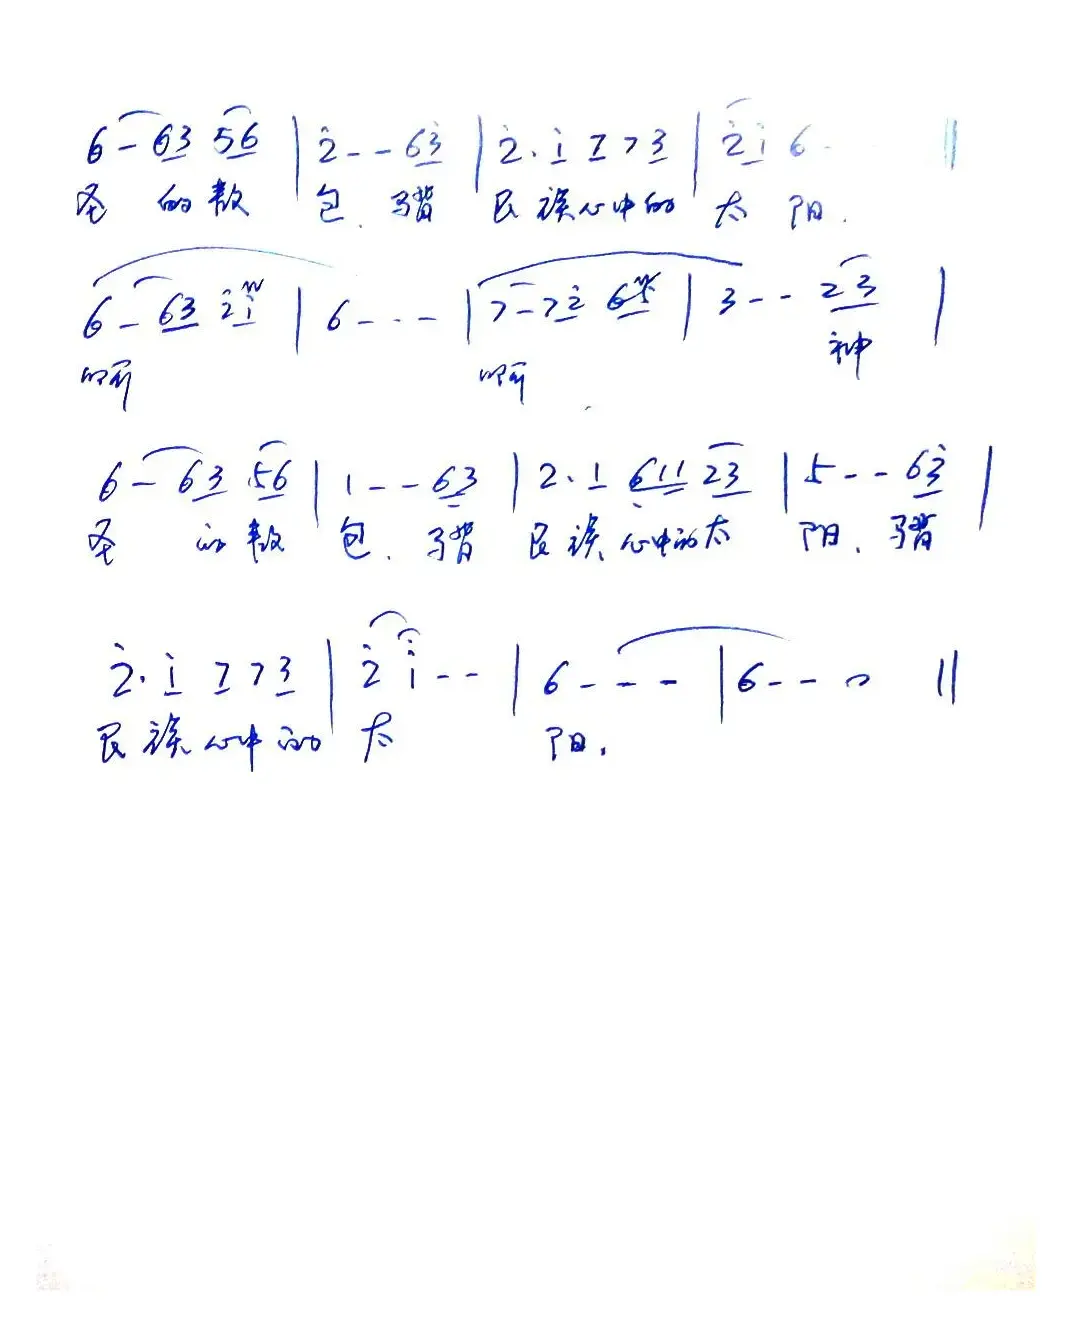 6 - 63 56 | 2̇ - - 63̇ | 2̇. i̇ 7 7 3 | 2̇ i̇ 6 - ‖
圣 的敖 包. 马背 民族心中的 太 阳.
6 - 63 2̇i̇ | 6 - - - | 7 - 72̇ 6 | 3 - - 23 |
啊 啊 神
6 - 63 56 | 1 - - 63 | 2. 1 611 23 | 5 - - 63̇ |
圣 的敖 包. 马背 民族心中的太 阳. 马背
2̇. i̇ 7 7 3 | 2̇ i̇ - - | 6 - - - | 6 - - 0 ‖
民族心中的 太 阳.